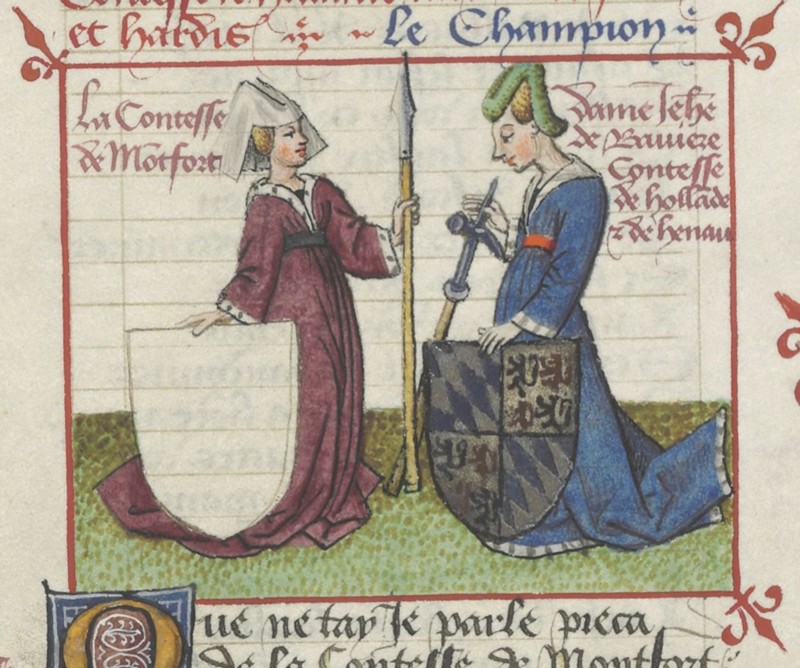 et hardis Le Champion
La Contesse
de Mõtfort
dame Jehẽ
de Baviere
Contesse
de hollãde
⁊ de henau
Que ne tay Je parle pieca
de la Contesse de Montfort